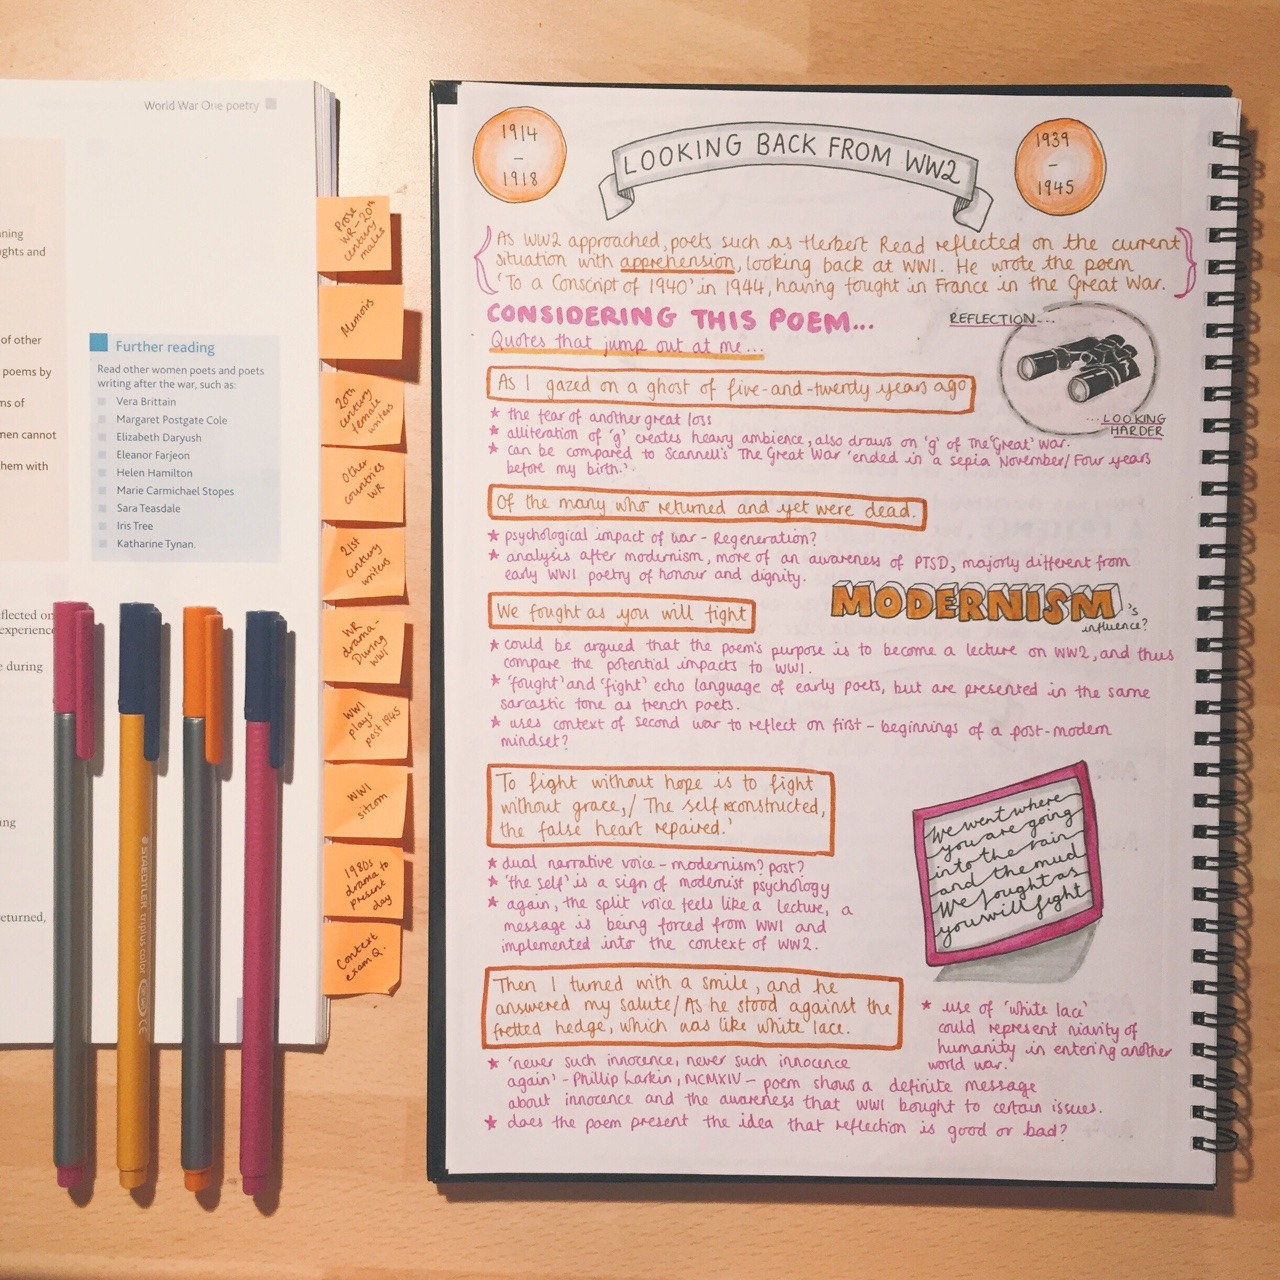 World War One poetry
nning
ghts and
of other
poems by
ms of
men cannot
hem with
Further reading
Read other women poets and poets
writing after the war, such as:
Vera Brittain
Margaret Postgate Cole
Elizabeth Daryush
Eleanor Farjeon
Helen Hamilton
Marie Carmichael Stopes
Sara Teasdale
Iris Tree
Katharine Tynan.
eflected on
experience
e during
ing
eturned,
STAEDTLER triplus color
CE
Prose
WR - 20th
century
males
Memoirs
20th
century
female
writers
Other
countries
WR
21st
century
writers
WR
drama-
During
WW1
WW1
plays
post 1945
WW1
sitcom
1980s
drama to
present
day
Context
exam Q.
1914
-
1918
LOOKING BACK FROM WW2
1939
-
1945
As WW2 approached, poets such as Herbert Read reflected on the current
situation with apprehension, looking back at WW1. He wrote the poem
'To a Conscript of 1940' in 1944, having fought in France in the Great War.
CONSIDERING THIS POEM...
Quotes that jump out at me...
REFLECTION...
...LOOKING
HARDER
As I gazed on a ghost of five-and-twenty years ago
* the fear of another great loss
* alliteration of 'g' creates heavy ambience, also draws on 'g' of The 'Great' War.
* can be compared to Scannell's 'The Great War' 'ended in a sepia November/Four years
before my birth.'
Of the many who returned and yet were dead.
* psychological impact of war - Regeneration?
* analysis after modernism, more of an awareness of PTSD, majorly different from
early WW1 poetry of honour and dignity.
MODERNISM's
influence?
We fought as you will fight
* could be argued that the poem's purpose is to become a lecture on WW2, and thus
compare the potential impacts to WW1.
* 'fought' and 'fight' echo language of early poets, but are presented in the same
sarcastic tone as trench poets.
* uses context of second war to reflect on first - beginnings of a post-modern
mindset?
To fight without hope is to fight
without grace,/ The self reconstructed,
the false heart repaired.'
* dual narrative voice - modernism? post?
* 'the self' is a sign of modernist psychology
* again, the split voice feels like a lecture, a
message is being forced from WW1 and
implemented into the context of WW2.
We went where
you are going
into the rain
and the mud
We fought as
you will fight
Then I turned with a smile, and he
answered my salute/ As he stood against the
fretted hedge, which was like white lace.
* use of 'white lace'
could represent niavity of
humanity in entering another
world war.
* 'never such innocence, never such innocence
again' - Phillip Larkin, MCMXIV - poem shows a definite message
about innocence and the awareness that WW1 bought to certain issues.
* does the poem present the idea that reflection is good or bad?